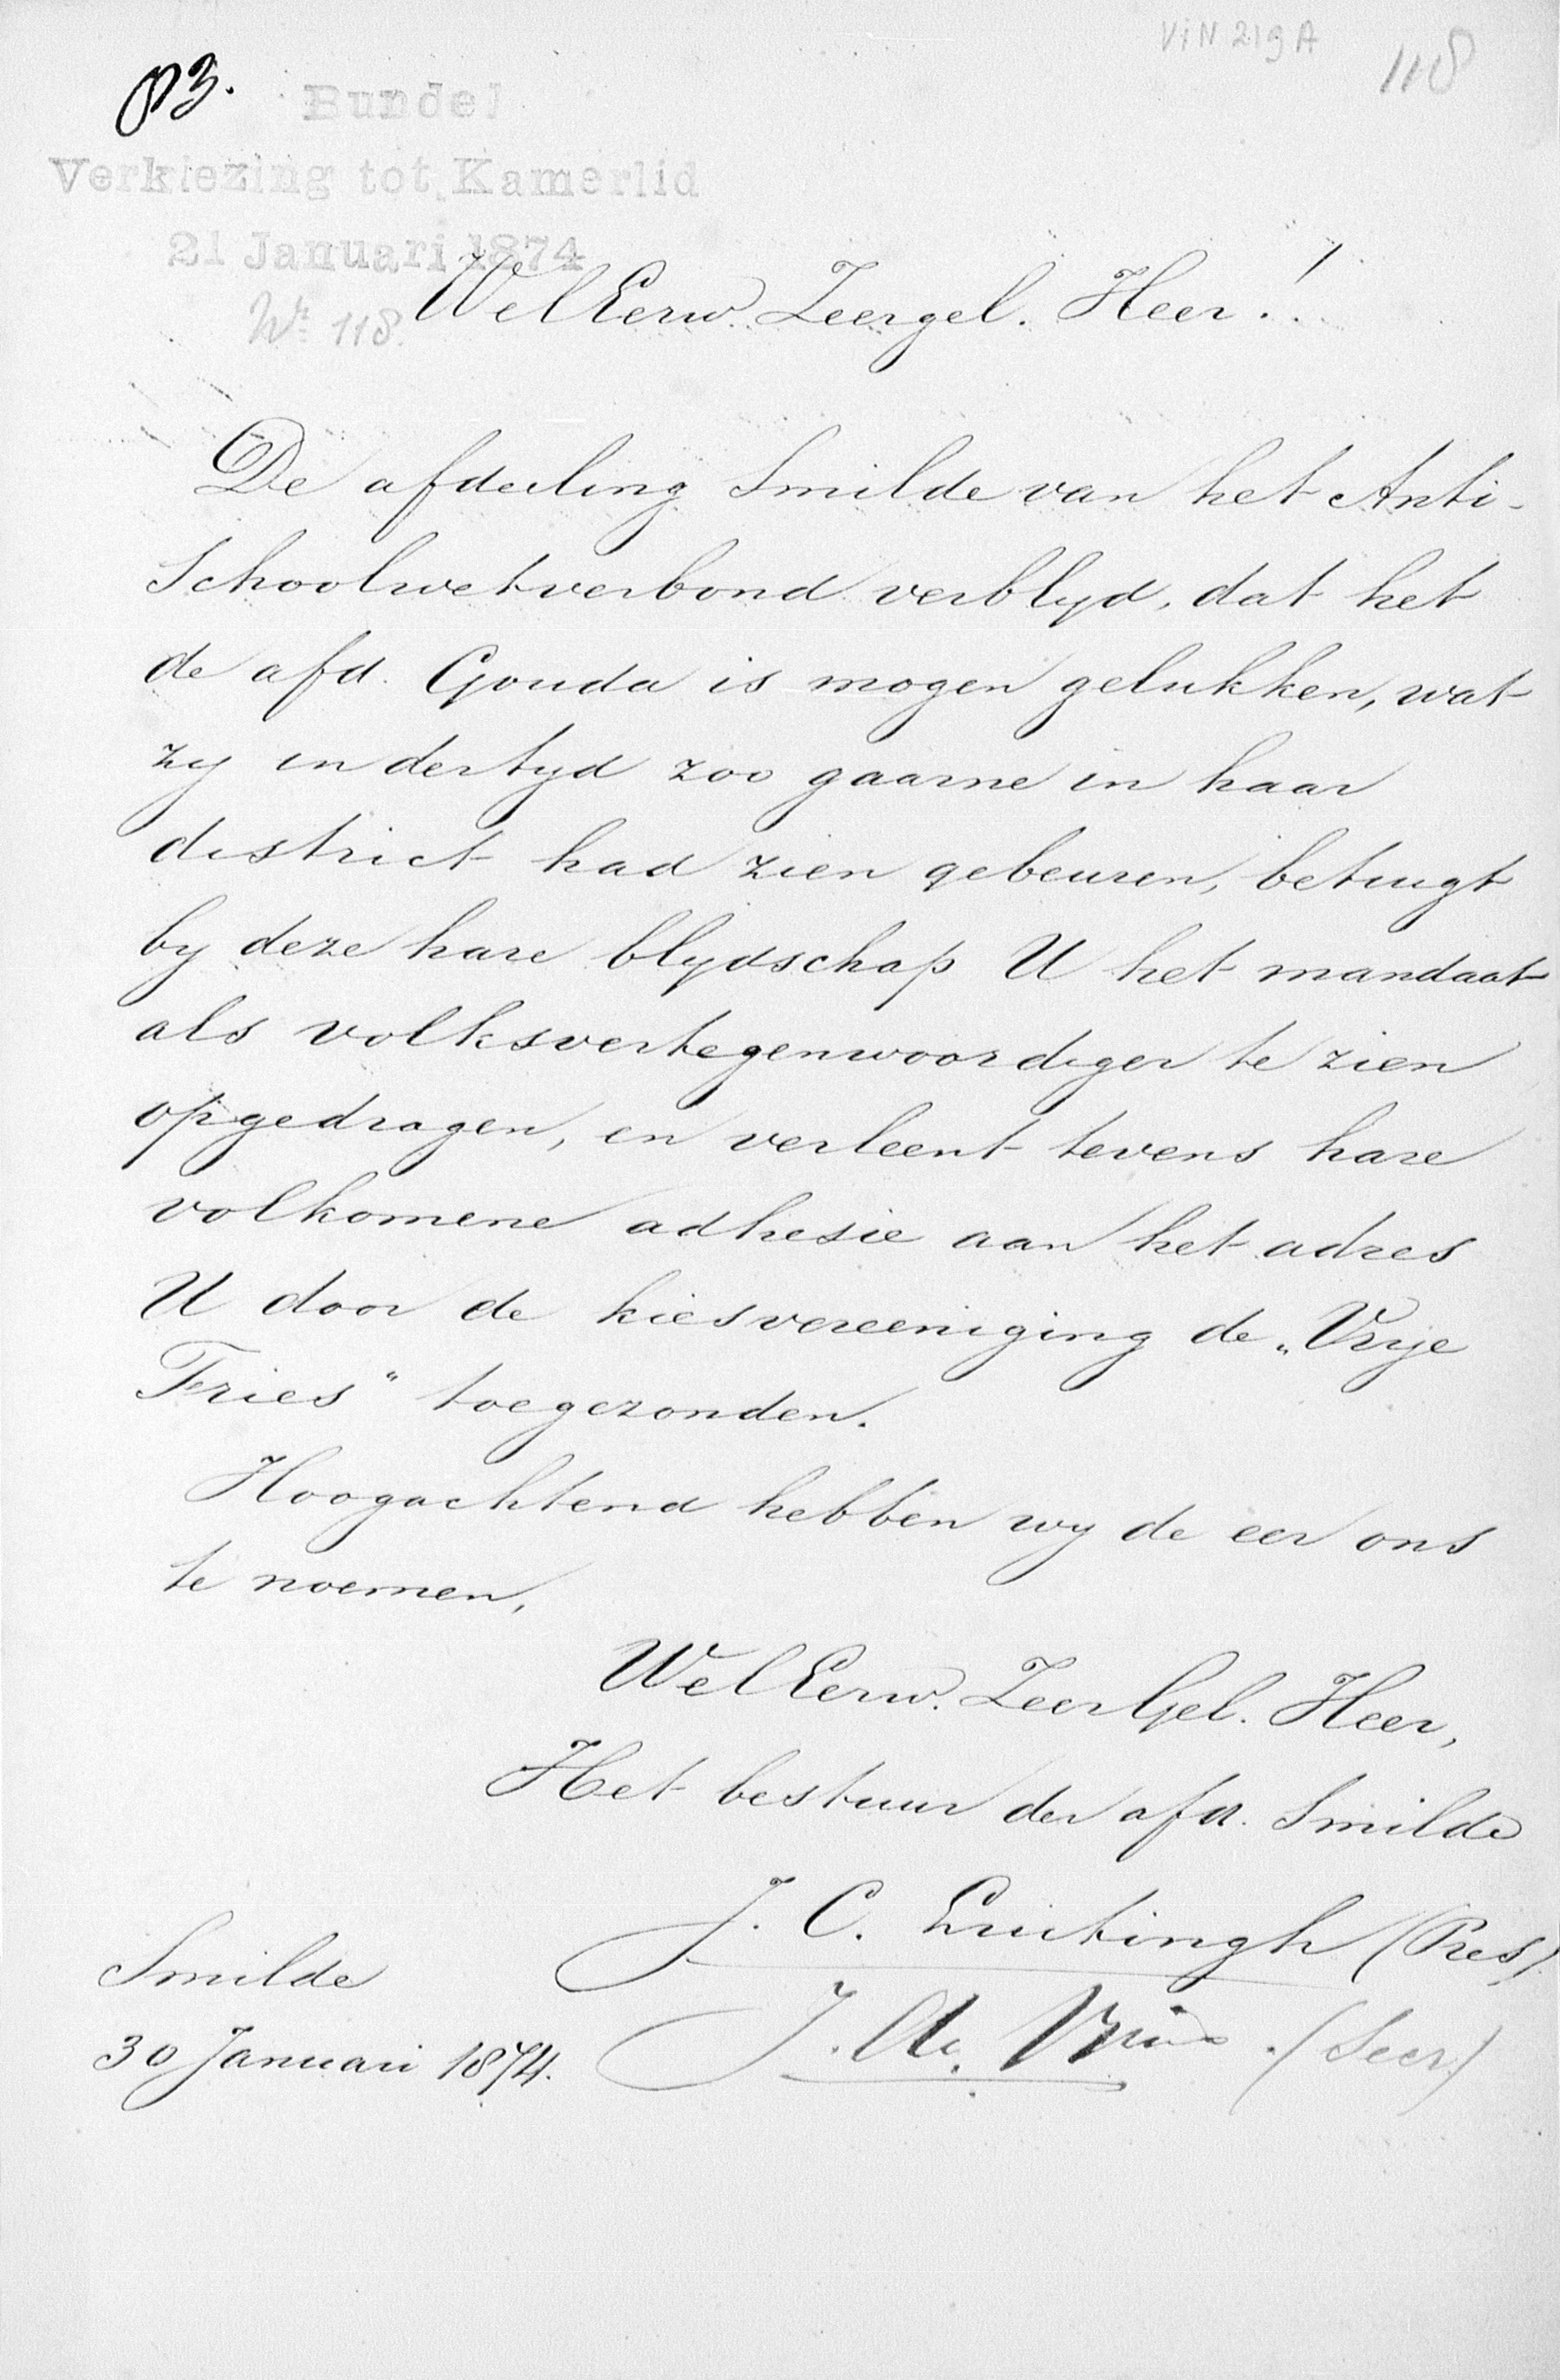 ViN 219A
118
83.
Bundel
Verkiezing tot Kamerlid
21 Januari 1874
No 118.
WelEerw. Zeergel. Heer!
De afdeeling Smilde van het Anti-
Schoolwetverbond verblyd, dat het
de afd. Gouda is mogen gelukken, wat
zy in dertyd zoo gaarne in haar
district had zien gebeuren, betuigt
by deze hare blydschap U het mandaat
als volksvertegenwoordiger te zien
opgedragen, en verleent tevens hare
volkomene adhesie aan het adres
U door de kiesvereeniging de „Vrije
Fries" toegezonden.
Hoogachtend hebben wy de eer ons
te noemen,
WelEerw. ZeerGel. Heer,
Het bestuur der afd. Smilde
J. C. Luitingh (Pres)
Smilde
J. de Vries. (Secr.)
30 Januari 1874.